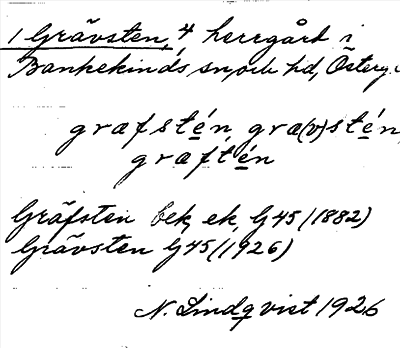 1 Grävsten, 4 herrgård i
Bankekinds sn och hd, Österg.
grafstén, gra(v)stén,
graftén
Gräfsten bek, ek, G45 (1882)
Grävsten G45 (1926)
N. Lindqvist 1926